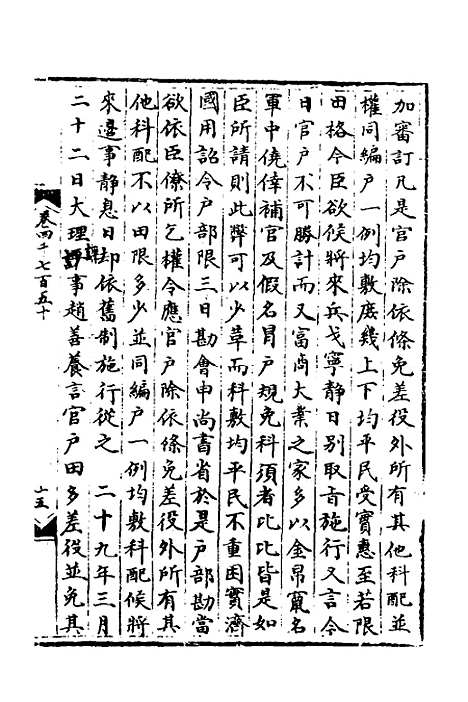 加審訂凡是官戶除依條免差役外所有其他科配並
權同編戶一例均敷庶幾上下均平民受實惠至若限
田格令臣欲候將來兵戈寧靜日別取旨施行又言今
日官戶不可勝計而又富商大業之家多以金帛竄名
軍中僥倖補官及假名冒戶規免科須者比比皆是如
臣所請則此弊可以少革而科敷均平民不重困實濟
國用詔令戶部限三日勘會申尚書省於是戶部勘當
欲依臣僚所乞權令應官戶除依條免差役外所有其
他科配不以田限多少並同編戶一例均敷科配候將
來邊事靜息日却依舊制施行從之 二十九年三月
二十二日大理評事趙善養言官戶田多差役並免其
卷四千七百五十
十五